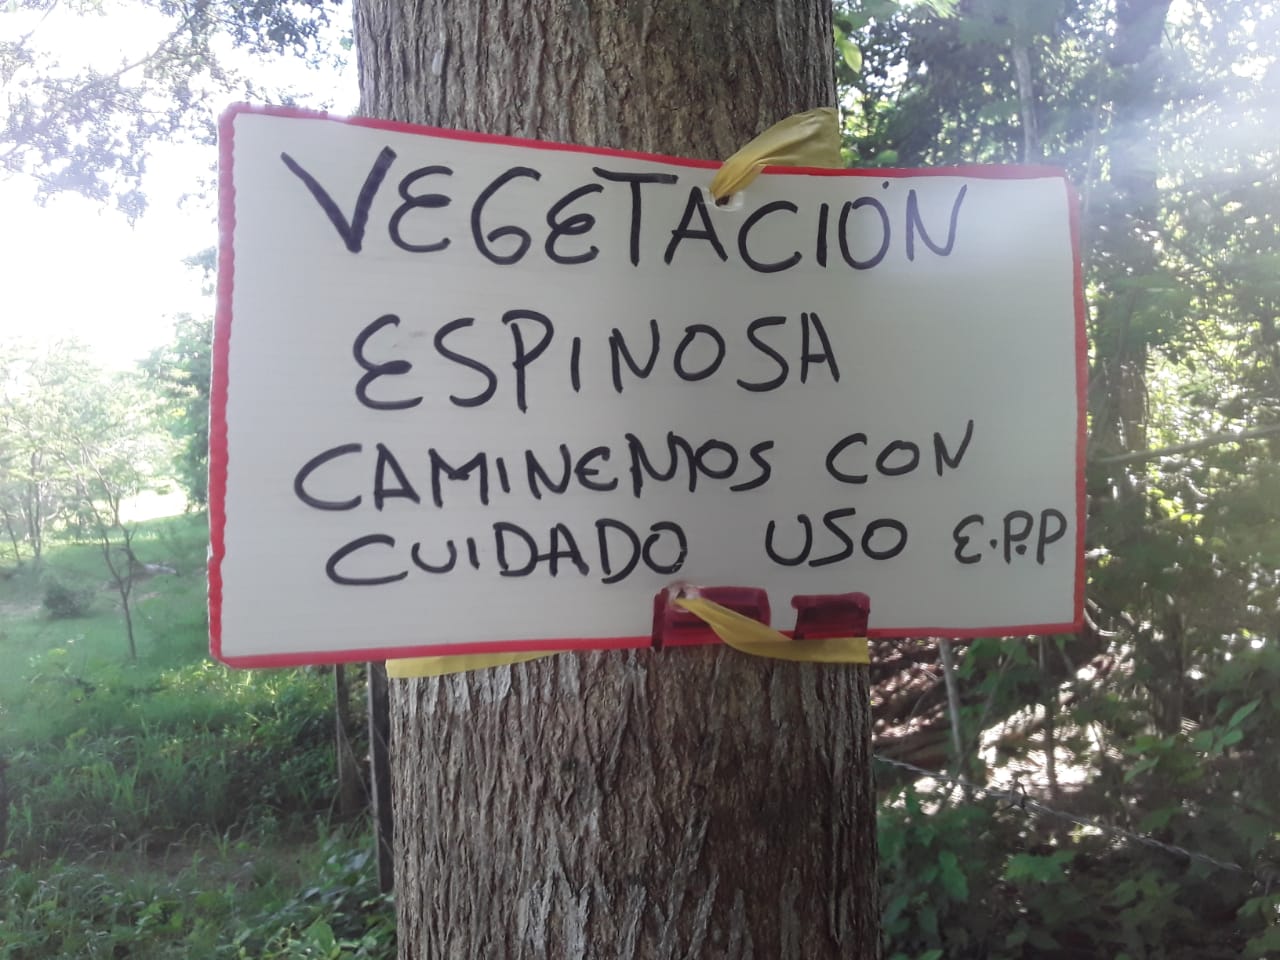 VEGETACIÓN
ESPINOSA
CAMINEMOS CON
CUIDADO USO E.P.P